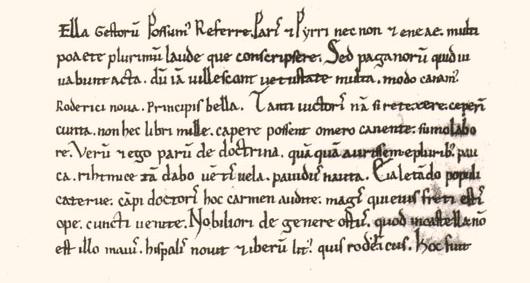 Ella gestorũ possum᷒ referre. Paris ⁊ pyrri nec non ⁊ eneae. multi
poaete plurimũ laude que conscripsere. Sed paganorũ quid iu
uabunt acta. dũ iã uillescant uetustate multa. modo canam᷒
Roderici noua. principis bella. Tanti uictoris nã si retexere ceperĩ
cunta. non hec libri mille. capere possent omero canente. sumo labo
re. Verũ ⁊ ego parũ de doctrina. quã quã aurissem e pluribus. pau
ca. rihtmice tã dabo uẽtis uela. pauidus nauta. Eia letãdo populi
caterue. cãpi doctoris hoc carmen audite. magis qui eius freti estis
ope. cuncti uenite. Nobiliori de genere ortus. quod in castella nõ
est illo maius. hispalis nouit ⁊ iberũ litus quis rodericus. Hoc fuit